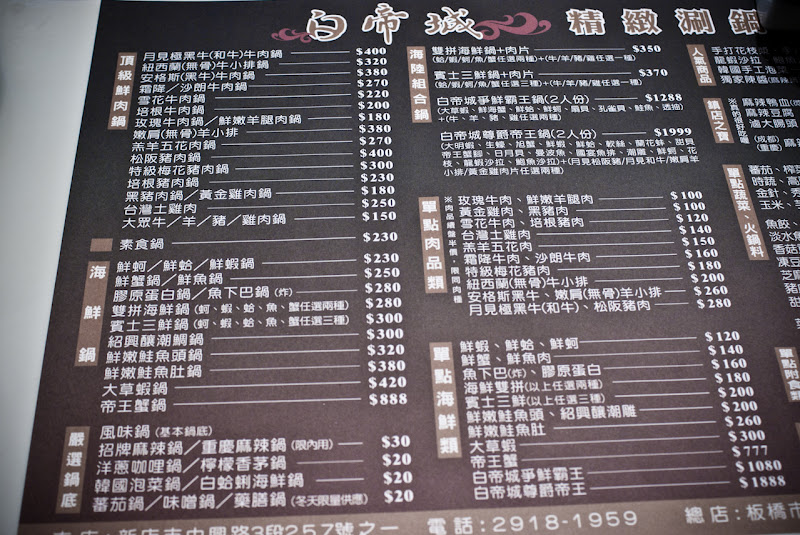 白帝城 精緻涮鍋
頂級鮮肉鍋
月見極黑牛(和牛)牛肉鍋 $400
紐西蘭(無骨)牛小排鍋 $320
安格斯(黑牛)牛肉鍋 $380
霜降／沙朗牛肉鍋 $270
雪花牛肉鍋 $220
培根牛肉鍋 $200
玫瑰牛肉鍋／鮮嫩羊腿肉鍋 $180
嫩肩(無骨)羊小排 $380
羔羊五花肉鍋 $270
松阪豬肉鍋 $400
特級梅花豬肉鍋 $300
培根豬肉鍋 $230
黑豬肉鍋／黃金雞肉鍋 $180
台灣土雞肉 $250
大眾牛／羊／豬／雞肉鍋 $150
素食鍋 $230
海鮮鍋
鮮蚵／鮮蛤／鮮蝦鍋 $230
鮮蟹鍋／鮮魚鍋 $250
膠原蛋白鍋／魚下巴鍋(炸) $280
雙拼海鮮鍋(蚵、蝦、蛤、魚、蟹任選兩種) $280
賓士三鮮鍋(蚵、蝦、蛤、魚、蟹任選三種) $300
紹興釀潮鯛鍋 $300
鮮嫩鮭魚頭鍋 $320
鮮嫩鮭魚肚鍋 $380
大草蝦鍋 $420
帝王蟹鍋 $888
嚴選鍋底
風味鍋(基本鍋底)
招牌麻辣鍋／重慶麻辣鍋(限內用) $30
洋蔥咖哩鍋／檸檬香茅鍋 $20
韓國泡菜鍋／白蛤蜊海鮮鍋 $20
番茄鍋／味噌鍋／藥膳鍋(冬天限量供應) $20
海陸組合鍋
雙拼海鮮鍋+肉片 $350
(蛤/蝦/蚵/魚/蟹任選兩種)+(牛/羊/豬/雞任選一種)
賓士三鮮鍋+肉片 $370
(蛤/蝦/蚵/魚/蟹任選三種)+(牛/羊/豬/雞任選一種)
白帝城爭鮮霸王鍋(2人份) $1288
(大草蝦、鮮海蟹、鮮蛤、鮮蚵、扇貝、孔雀貝、鮭魚、透抽)
+(牛、羊、豬、雞任選兩種)
白帝城尊爵帝王鍋(2人份) $1999
(大明蝦、生蠔、旭蟹、鮮蝦、鮮蛤、軟絲、蘭花蚌、甜貝
帝王蟹腳、日月貝、曼波魚、國宴魚排、潮鯛、鮮蚵、花
枝、龍蝦沙拉、鮑魚沙拉)+(月見松阪豬/月見和牛/嫩肩羊
小排/黃金雞肉片任選兩種)
單點肉品類
※肉品續盤半價、限同肉種
玫瑰牛肉、鮮嫩羊腿肉 $100
黃金雞肉、黑豬肉 $100
雪花牛肉、培根豬肉 $120
台灣土雞肉 $140
羔羊五花肉 $150
霜降牛肉、沙朗牛肉 $160
特級梅花豬肉 $180
紐西蘭(無骨)牛小排 $200
安格斯黑牛、嫩肩(無骨)羊小排 $260
月見極黑牛(和牛)、松阪豬肉 $280
單點海鮮類
鮮蝦、鮮蛤、鮮蚵 $120
鮮蟹、鮮魚肉 $140
魚下巴(炸)、膠原蛋白 $160
海鮮雙拼(以上任選兩種) $180
賓士三鮮(以上任選三種) $200
鮮嫩鮭魚頭、紹興釀潮雕 $200
鮮嫩鮭魚肚 $260
大草蝦 $300
帝王蟹 $777
白帝城爭鮮霸王 $1080
白帝城尊爵帝王 $1888
人氣商品
手打花枝
龍蝦沙拉
韓國手工泡菜
獨家陳醬
鎮店之寶
麻辣鴨血
麻辣豆腐
滷大腸頭
(成都)
(重慶)
單點蔬菜、火鍋料
番茄、
時蔬、高
金針、
玉米、
魚餃、
淡水魚
香菇
凍豆
芝麻
豬
甜
單點附食類
本店:新店市中興路3段257號之一 電話:2918-1959 總店:板橋市